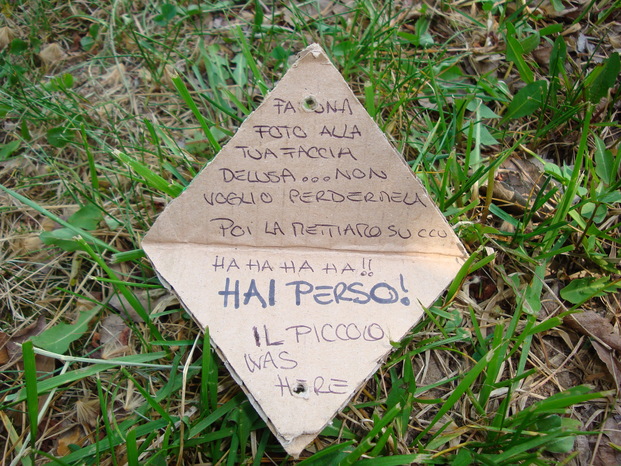 FAI UNA
FOTO ALLA
TUA FACCIA
DELUSA...NON
VOGLIO PERDERMELA
POI LA METTIAMO SU CCU
HA HA HA HA!!
HAI PERSO!
IL PICCOLO
WAS
HERE